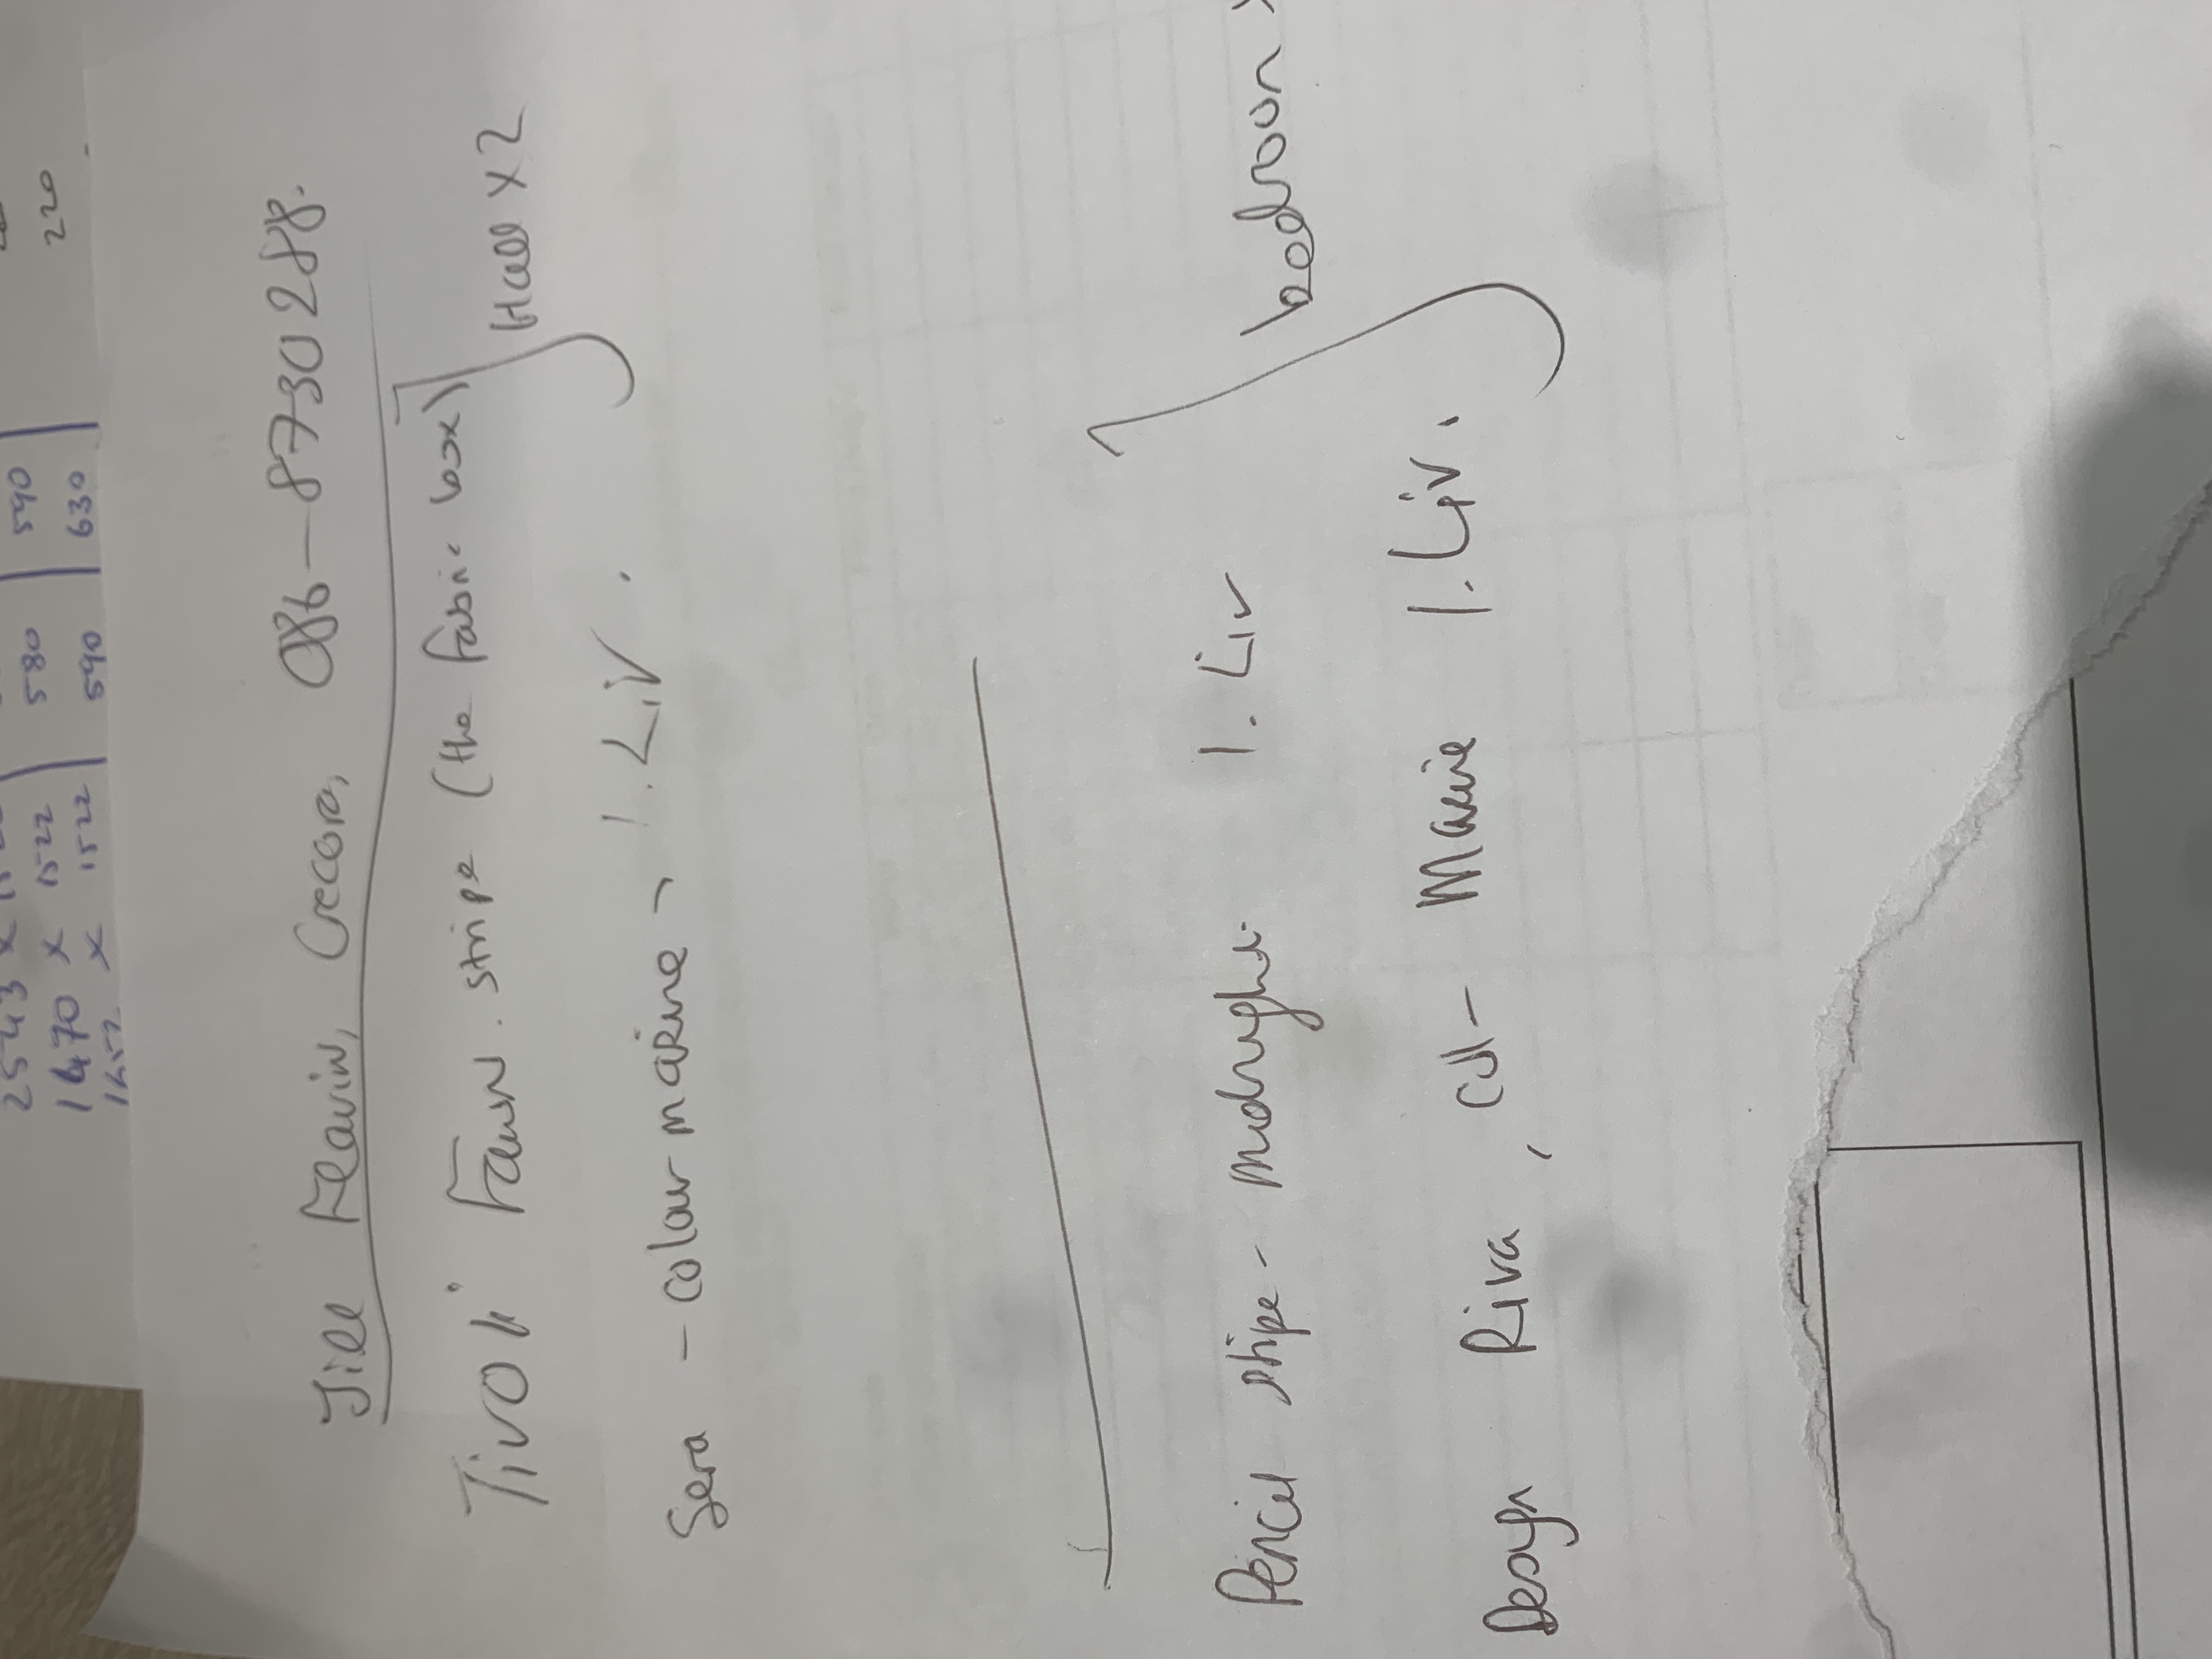 220
2543 x
1470 x 1522 | 580 | 590 |
x 1522 | 590 | 630 |
Jill Flavin, Crecora, 086-8730288.
Tivoli Fawn. stripe (the fabric box) Hall x2
Sera - colour marine - 1. Liv.
Pencil stripe - midnight 1. Liv bedroom x
Design Riva, Col - Marine 1. Liv.